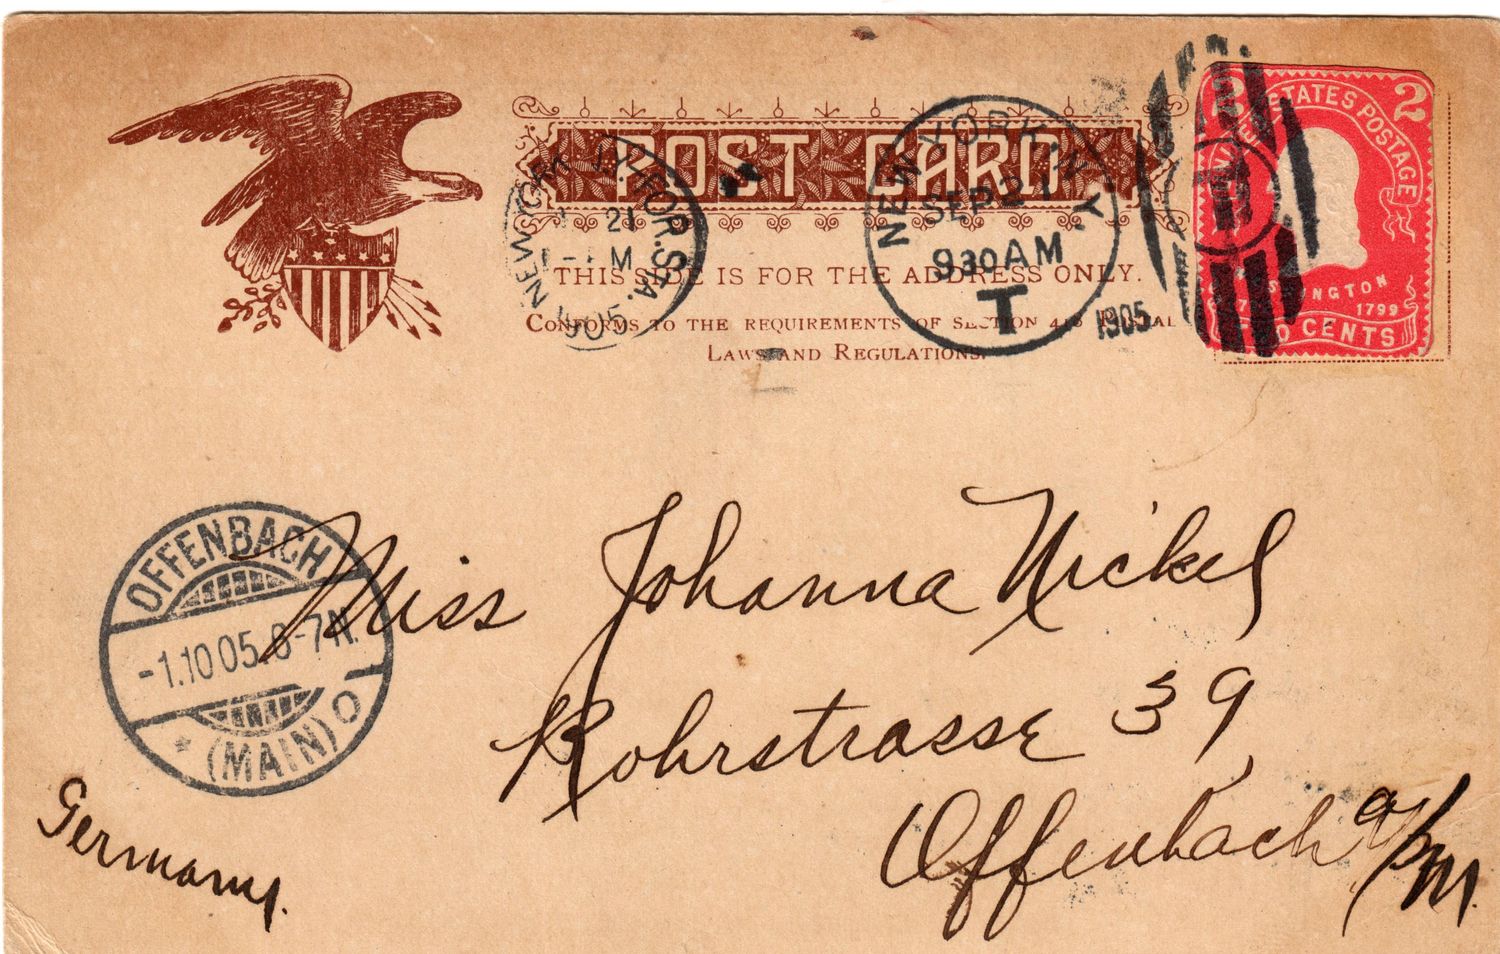 POST CARD
THIS SIDE IS FOR THE ADDRESS ONLY.
CONFORMS TO THE REQUIREMENTS OF SECTION
LAWS AND REGULATIONS.
NEW YORK, N.Y.
SEP 21
930 AM
1905
T
NEW YOR
21
M
FOR. STA.
1905
2 STATES POSTAGE 2
1799
TWO CENTS
OFFENBACH
-1.10 05. 6-7 N.
* (MAIN) O
Miss Johanna Nickel
Rohrstrasse 39
Offenbach a/M.
Germany.